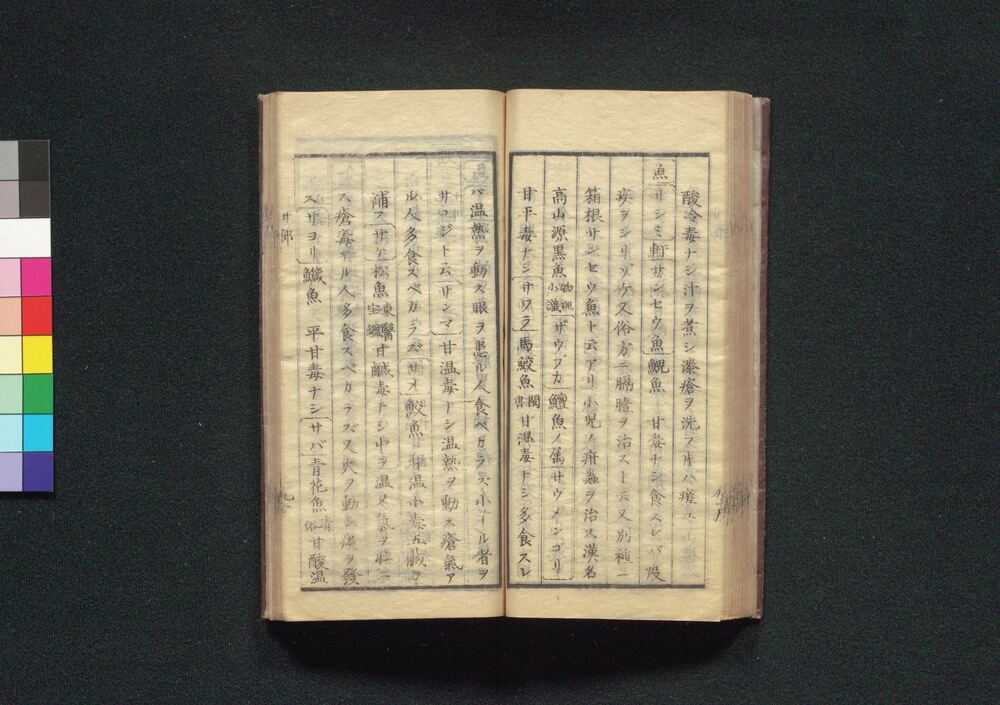 酸冷毒ナシ汁ヲ煮シ漆瘡ヲ洗フ
魚 サシミ 軒 サンセウ魚 鯢魚 甘毒ナシ食スレバ疫
疾ヲシリゾケ又俗方ニ膈噎ヲ治スト云又別種ニ
箱根サンセウ魚ト云アリ小児ノ疳蟲ヲ治ス漢名
高山源黒魚 物理小識 ザウブカ 鱣魚ノ属 サウメンゴリ
甘平毒ナシ サワラ 馬鮫魚 閩書 甘温毒ナシ多食スレ
バ温熱ヲ動ス眼ヲ患ル人食ベカラズ小ナル者ヲ
サゴジト云 サンマ 甘温毒ナシ温熱ヲ動ス瘡氣ア
ル人多食スベカラズ サメ 鮫魚 温小毒五臓ヲ
補フ サケ 松魚 東醫宝鑑 甘鹹毒ナシ中ヲ温メ氣ヲ壮ニ
ス瘡毒アル人多食スベカラズ又火ヲ動シ痰ヲ發
ス サヨリ 鱵魚 平甘毒ナシ サバ 青花魚 俗 甘酸温
サ部